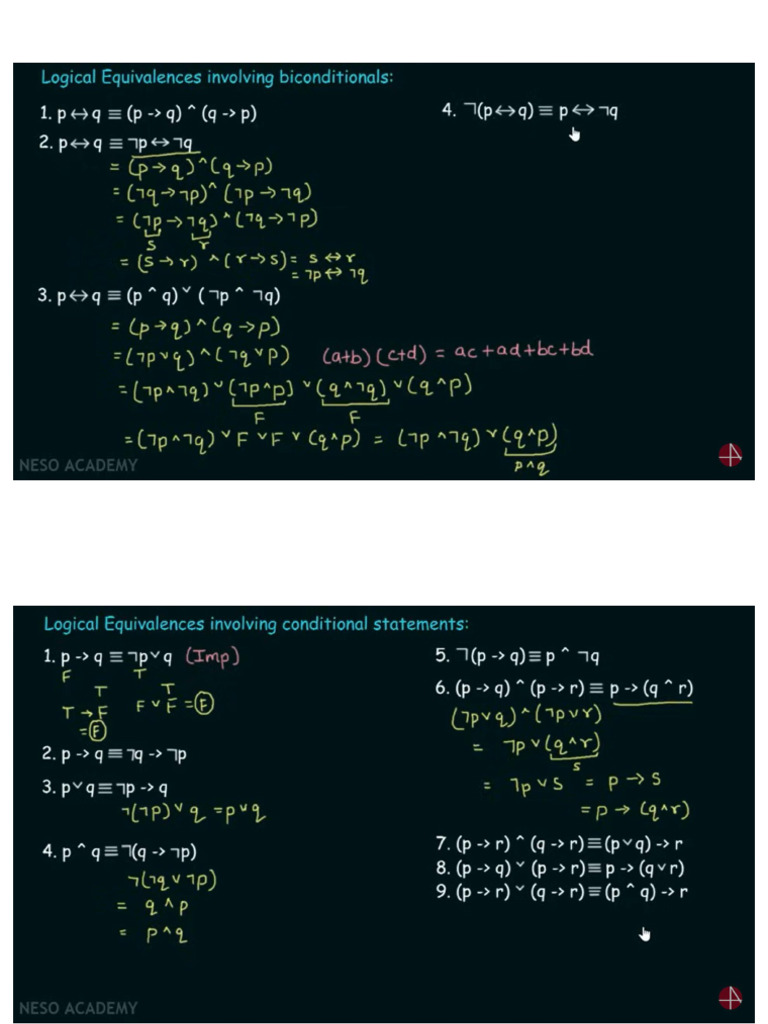 Logical Equivalences involving biconditionals:
1. p↔q ≡ (p -> q) ^ (q -> p)
2. p↔q ≡ ¬p↔¬q
= (p→q)^(q→p)
= (¬q→¬p)^(¬p→¬q)
= (¬p→¬q)^(¬q→¬p)
s r
= (s→r) ^(r→s) = s↔r
= ¬p↔¬q
3. p↔q ≡ (p ^ q) ˅ (¬p ^ ¬q)
= (p→q)^(q→p)
= (¬p˅q)^(¬q˅p) (a+b)(c+d) = ac+ad+bc+bd
= (¬p^¬q)˅(¬p^p)˅(q^¬q)˅(q^p)
F F
= (¬p^¬q)˅F˅F˅(q^p) = (¬p^¬q)˅(q^p)
p^q
4. ¬(p↔q) ≡ p↔¬q
NESO ACADEMY
Logical Equivalences involving conditional statements:
1. p -> q ≡ ¬p˅q (Imp)
F T
T T
T→F F˅F = F
= F
2. p -> q ≡ ¬q -> ¬p
3. p˅q ≡ ¬p -> q
¬(¬p)˅q = p˅q
4. p ^ q ≡ ¬(q -> ¬p)
¬(¬q˅¬p)
= q^p
= p^q
5. ¬(p -> q) ≡ p ^ ¬q
6. (p -> q) ^ (p -> r) ≡ p -> (q ^ r)
(¬p˅q)^(¬p˅r)
= ¬p˅(q^r)
s
= ¬p˅s = p→s
= p→(q^r)
7. (p -> r) ^ (q -> r) ≡ (p˅q) -> r
8. (p -> q) ˅ (p -> r) ≡ p -> (q˅r)
9. (p -> r) ˅ (q -> r) ≡ (p ^ q) -> r
NESO ACADEMY